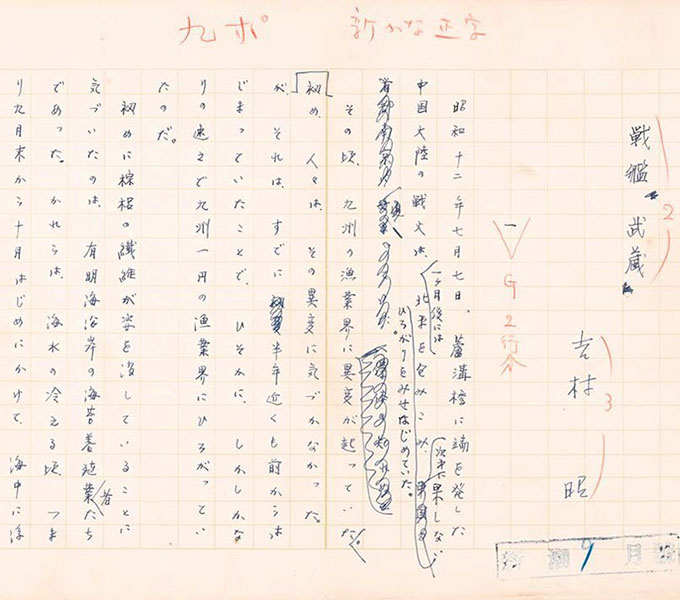 九ポ 新かな正字
戦艦 武蔵
2
吉村 昭
3
一
G 2行分
昭和十二年七月七日、蘆溝橋に端を発した
中国大陸の戦火は、一ヶ月後には北平をのみこみ、次第に果しない
ひろがりをみせはじめていた。
その頃、九州の漁業界に異変が起っていた。
初め、人々は、その異変に気づかなかった。
が、それは、すでに半年近くも前からは
じまっていたことで、ひそかに、しかしかな
りの速さで九州一円の漁業界にひろがってい
たのだ。
初めに棕梠の繊維が姿を消していることに
気づいたのは、有明海沿岸の海苔養殖業者たち
であった。かれらは、海水の冷える頃、つま
り九月末から十月はじめにかけて、海中に浮
潮 9 月